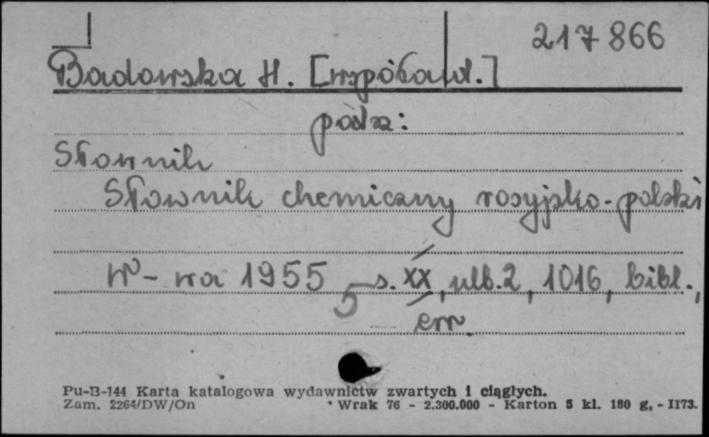 217866
Badowska H. [współaut.]
podz:
Słownik
Słownik chemiczny rosyjsko-polski
W-wa 1955 s. XX, nlb.2, 1016, bibl.,
5 err.
Pu-B-144 Karta katalogowa wydawnictw zwartych i ciągłych.
Zam. 2264/DW/On Wrak 76 - 2.300.000 - Karton 5 kl. 180 g, - II73.